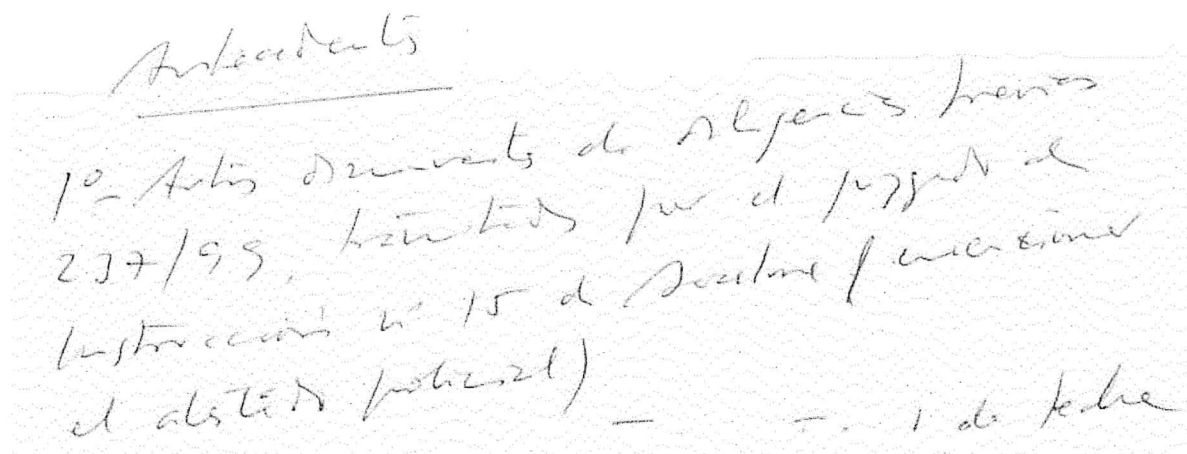 Antecedentes
1º- Autos dimanantes de diligencias previas
237/99, tramitados por el juzgado de
Instrucción nº 15 de (mencionar
el atestado policial)
de fecha